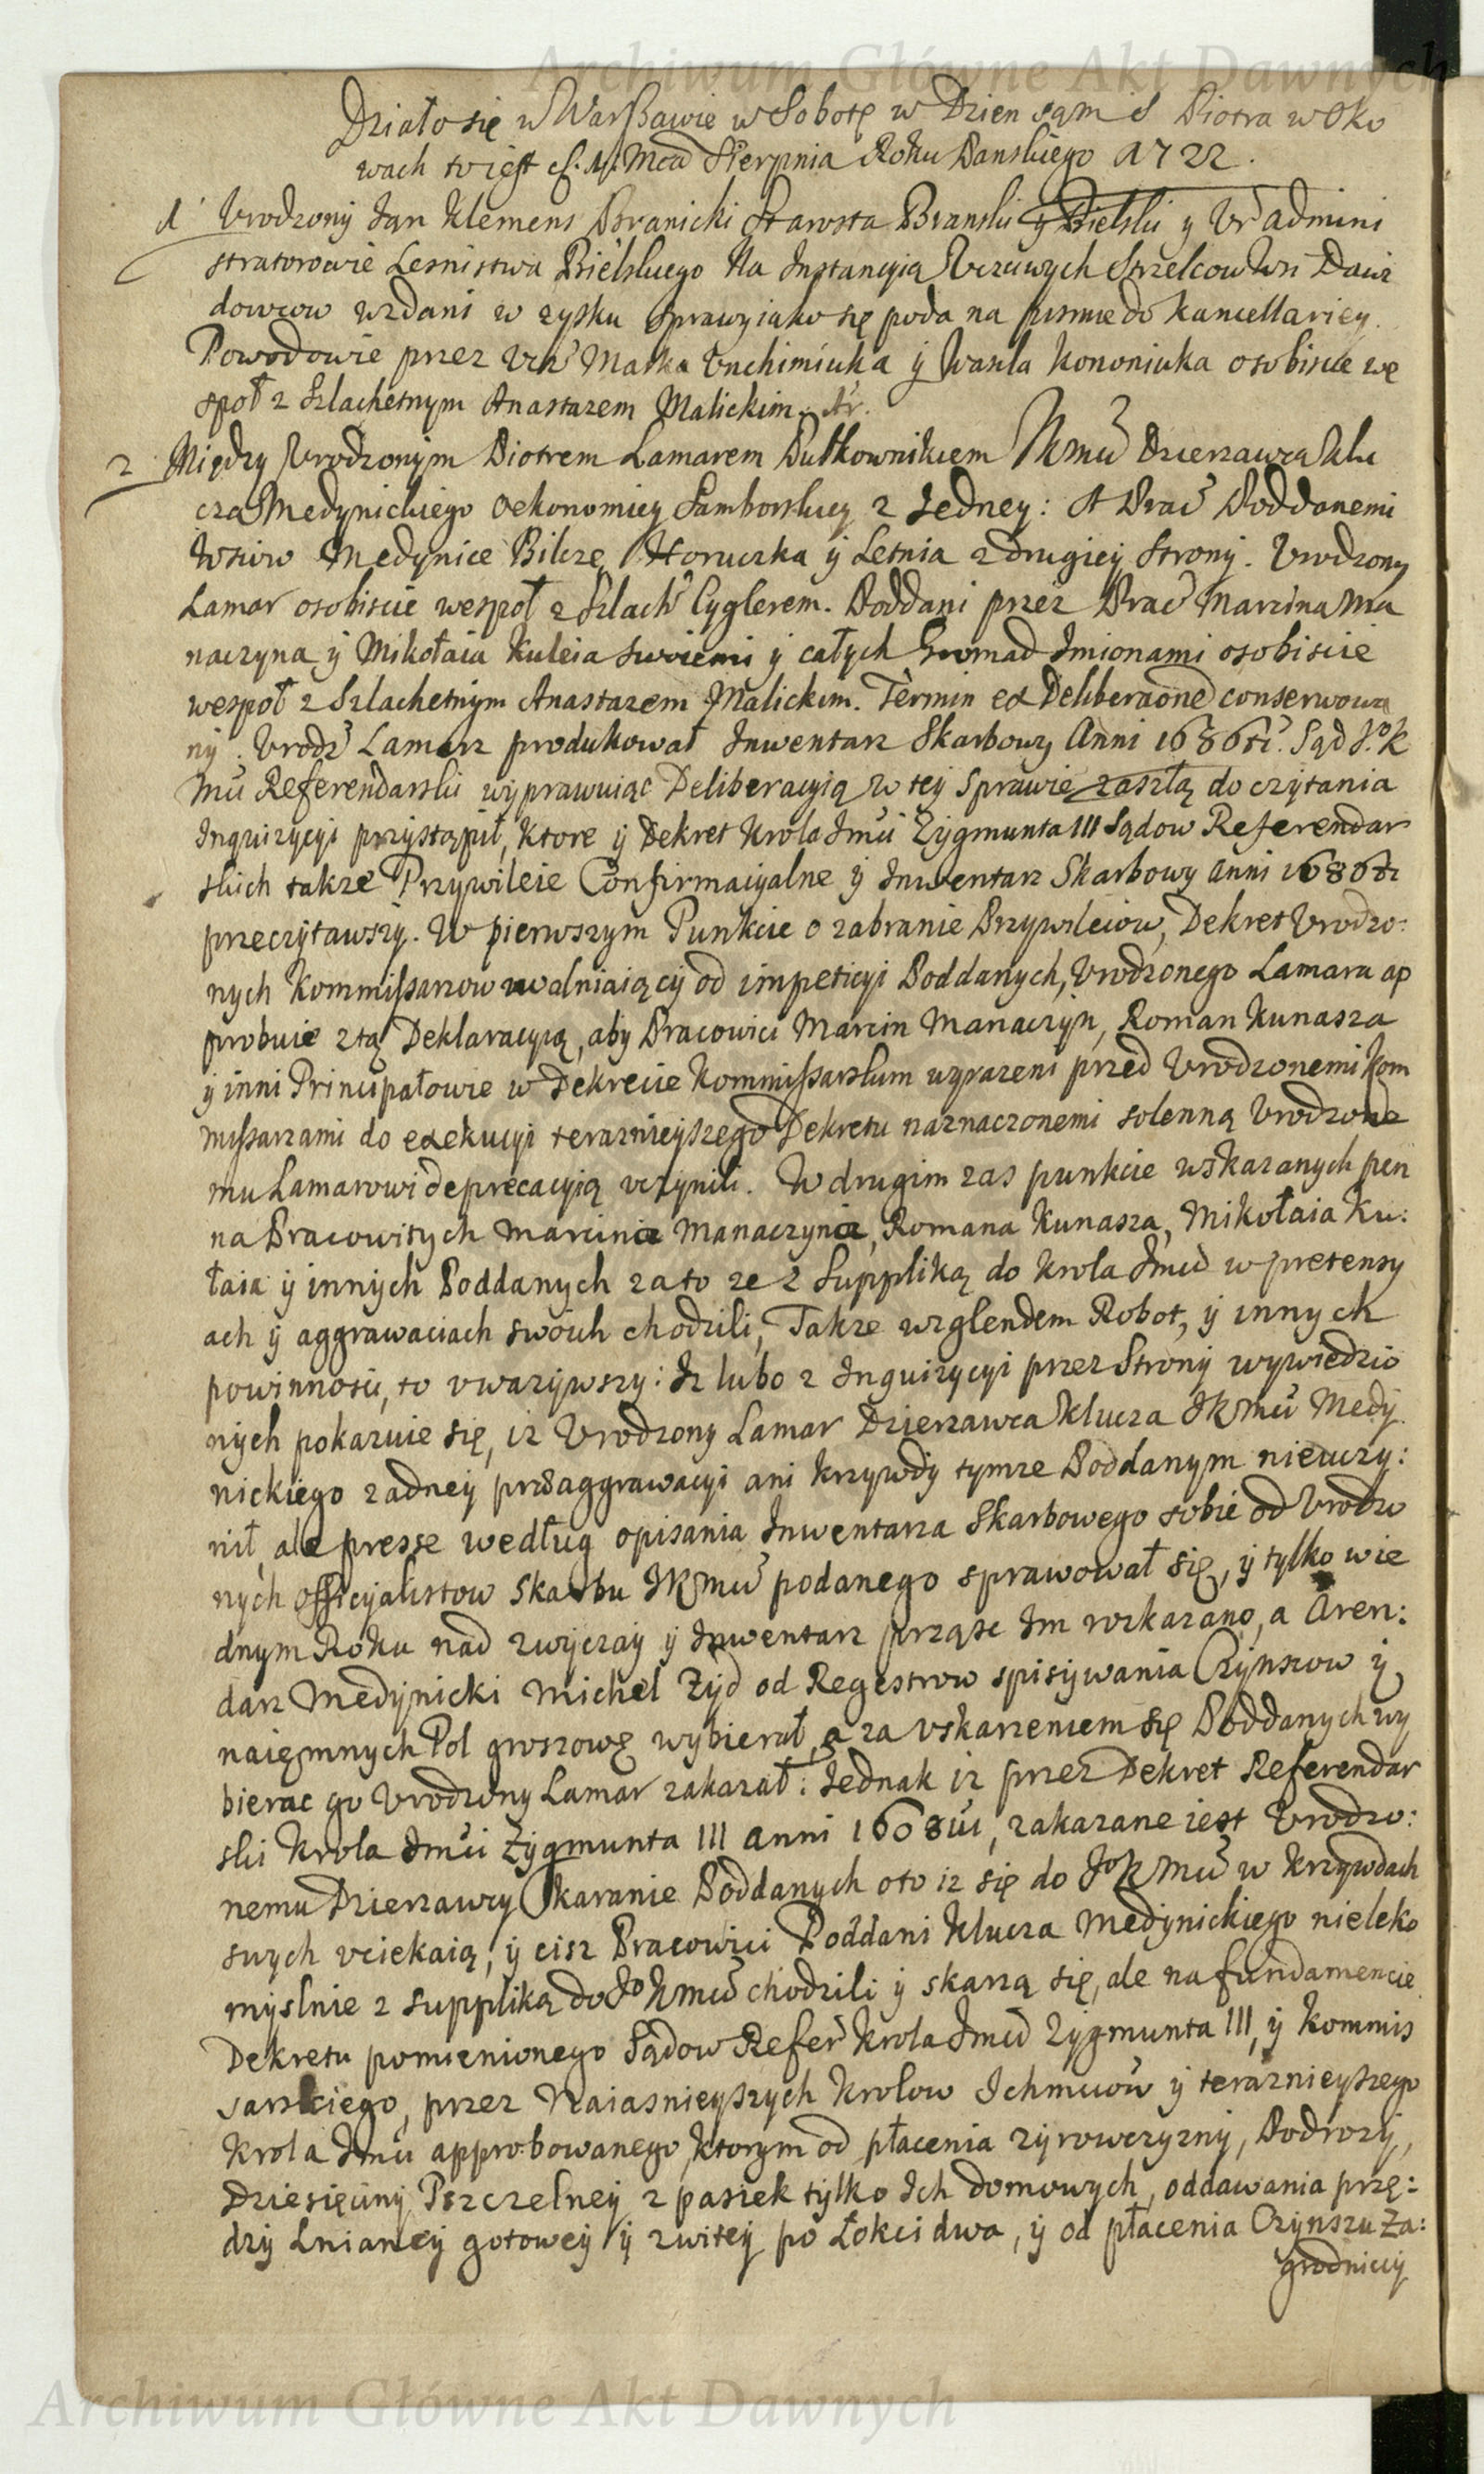 Archiwum Główne Akt Dawnych
Działo się w Warszawie w Sobotę w Dzien sąm S Piotra w Oko
wach to iest Mca Sierpnia Roku Panskiego 1722.
1 Vrodzony Jan Klemens Branicki Starosta Branski y Bielski y Vr admini
stratorowie Lesnistwa Bielskiego Na Instancyią Vczciwych Strzelcow Wsi Dawi
dowcow wzdani w zysku sprawy iako się poda na pismie do kancellaryey.
Powodowie przez Vcz Marka Vnchimiuka ÿ Wasila Kononiuka osobiscie we
społ z Szlachetnym Anastazem Malickim.
2 Między Vrodzonym Piotrem Lamarem Pułkownikiem JKMci Dzierzawcą Klu
cza Medynickiego Oekonomiey Samborskiey z Jedney: A Prac Poddanemi
Wsiow Medynice Bilcze Horuczka ÿ Letnia z drugieÿ Stronÿ. Vrodzony
Lamar osobiscie wespoł z Szlach Cyglerem. Poddani przez Prac Marcina Ma
naczyna ÿ Mikołaia Kuleia swoiemi ÿ całych Gromad Imionami osobiscie
wespoł z Szlachetnÿm Anastazem Malickim. Termin ex Deliberaone conserwowa
nÿ. Vrodz Lamarz produkował Inwentarz Skarbowy Anni 1686ti. Sąd Jo K
Mci Referendarski wÿprawuiąc Deliberacyią w tey Sprawie zaszłą do czÿtania
Inquizycyi przÿstąpił, Ktore ÿ Dekret Krola Jmci Zÿgmunta III Sądow Referendar
skich takze Przywileie Confirmacyalne ÿ Inwentarz Skarbowy anni 1686ti
przeczÿtawszÿ. W pierwszym Punkcie o zabranie Przywileiow, Dekret Vrodzo:
nych Kommissarzow uwalniaiącÿ od impeticyi Poddanych, Vrodzonego Lamara ap
probuie z tą Deklaracyią, aby Pracowici Marcin Manaczÿn, Roman Kunasza
ÿ inni Principałowie w Dekrecie Kommissarskim wyrazeni przed Vrodzonemi Kom
missarzami do exekucyi teraznieyszego Dekretu naznaczonemi solenną Vrodzone
mu Lamarowi deprecacyią vczynili. W drugim zas punkcie wskazanych pen
na Pracowitych Marcina Manaczyna, Romana Kunasza, Mikołaia Ku:
łaia ÿ innÿch Poddanych za to ze z Suppliką do Krola Jmci w pretensy
ach ÿ aggrawaciach swoich chodzili, Takze wzglendem Robot, ÿ innych
powinnosci, to vwazÿwszy: Iz lubo z Inquizycyi przez Stronÿ wywiedzio
nÿch pokazuie się, iz Vrodzony Lamar Dzierzawca Klucza JKMci Medÿ
nickiego zadneÿ prae aggrawacyi ani krzywdy tymze Poddanym nieuczÿ:
nił, ale presse według opisania Inwentarza Skarbowego sobie od Vrodzo
nÿch officyalistow Skarbu JKMci podanego sprawował się, ÿ tylko w ie
dnym Roku nad zwÿczay ÿ Inwentarz prząsc Im rozkazano, a Aren:
darz Medÿnicki Michel Zÿd od Regestrow spisÿwania Czÿnszow ÿ
naięmnych Pol groszowe wÿbierał, a za vskarzeniem się Poddanych wy
bierac go Vrodzony Lamar zakazał: Jednak iz przez Dekret Referendar
ski Krola Jmci Zÿgmunta III anni 1608vi, zakazane iest Vrodzo:
nemu Dzierzawcy Karanie Poddanych o to iz się do Jo K Mci w krzywdach
swych vciekaią, ÿ cisz Pracowici Poddani Klucza Medÿnickiego nieleko
mÿslnie z suppliką do Jo KMci chodzili ÿ skarzą się, ale na fundamencie
Dekretu pomienionego Sądow Refer Krola Jmci Zÿgmunta III, ÿ Kommis
sarskiego, przez Naiasnieyszych Krolow Ichmciow ÿ teraznieyszego
Krola Jmci approbowanego, ktorym od płacenia zÿrowczyznÿ, Podrozÿ,
Dziesięcinÿ Pszczelneÿ z pasiek tÿlko Ich domowych, oddawania przę:
dzÿ Lnianeÿ gotoweÿ ÿ zwiteÿ po Łokci dwa, ÿ od płacenia Czynszu Za:
grodniczÿ
Archiwum Główne Akt Dawnych